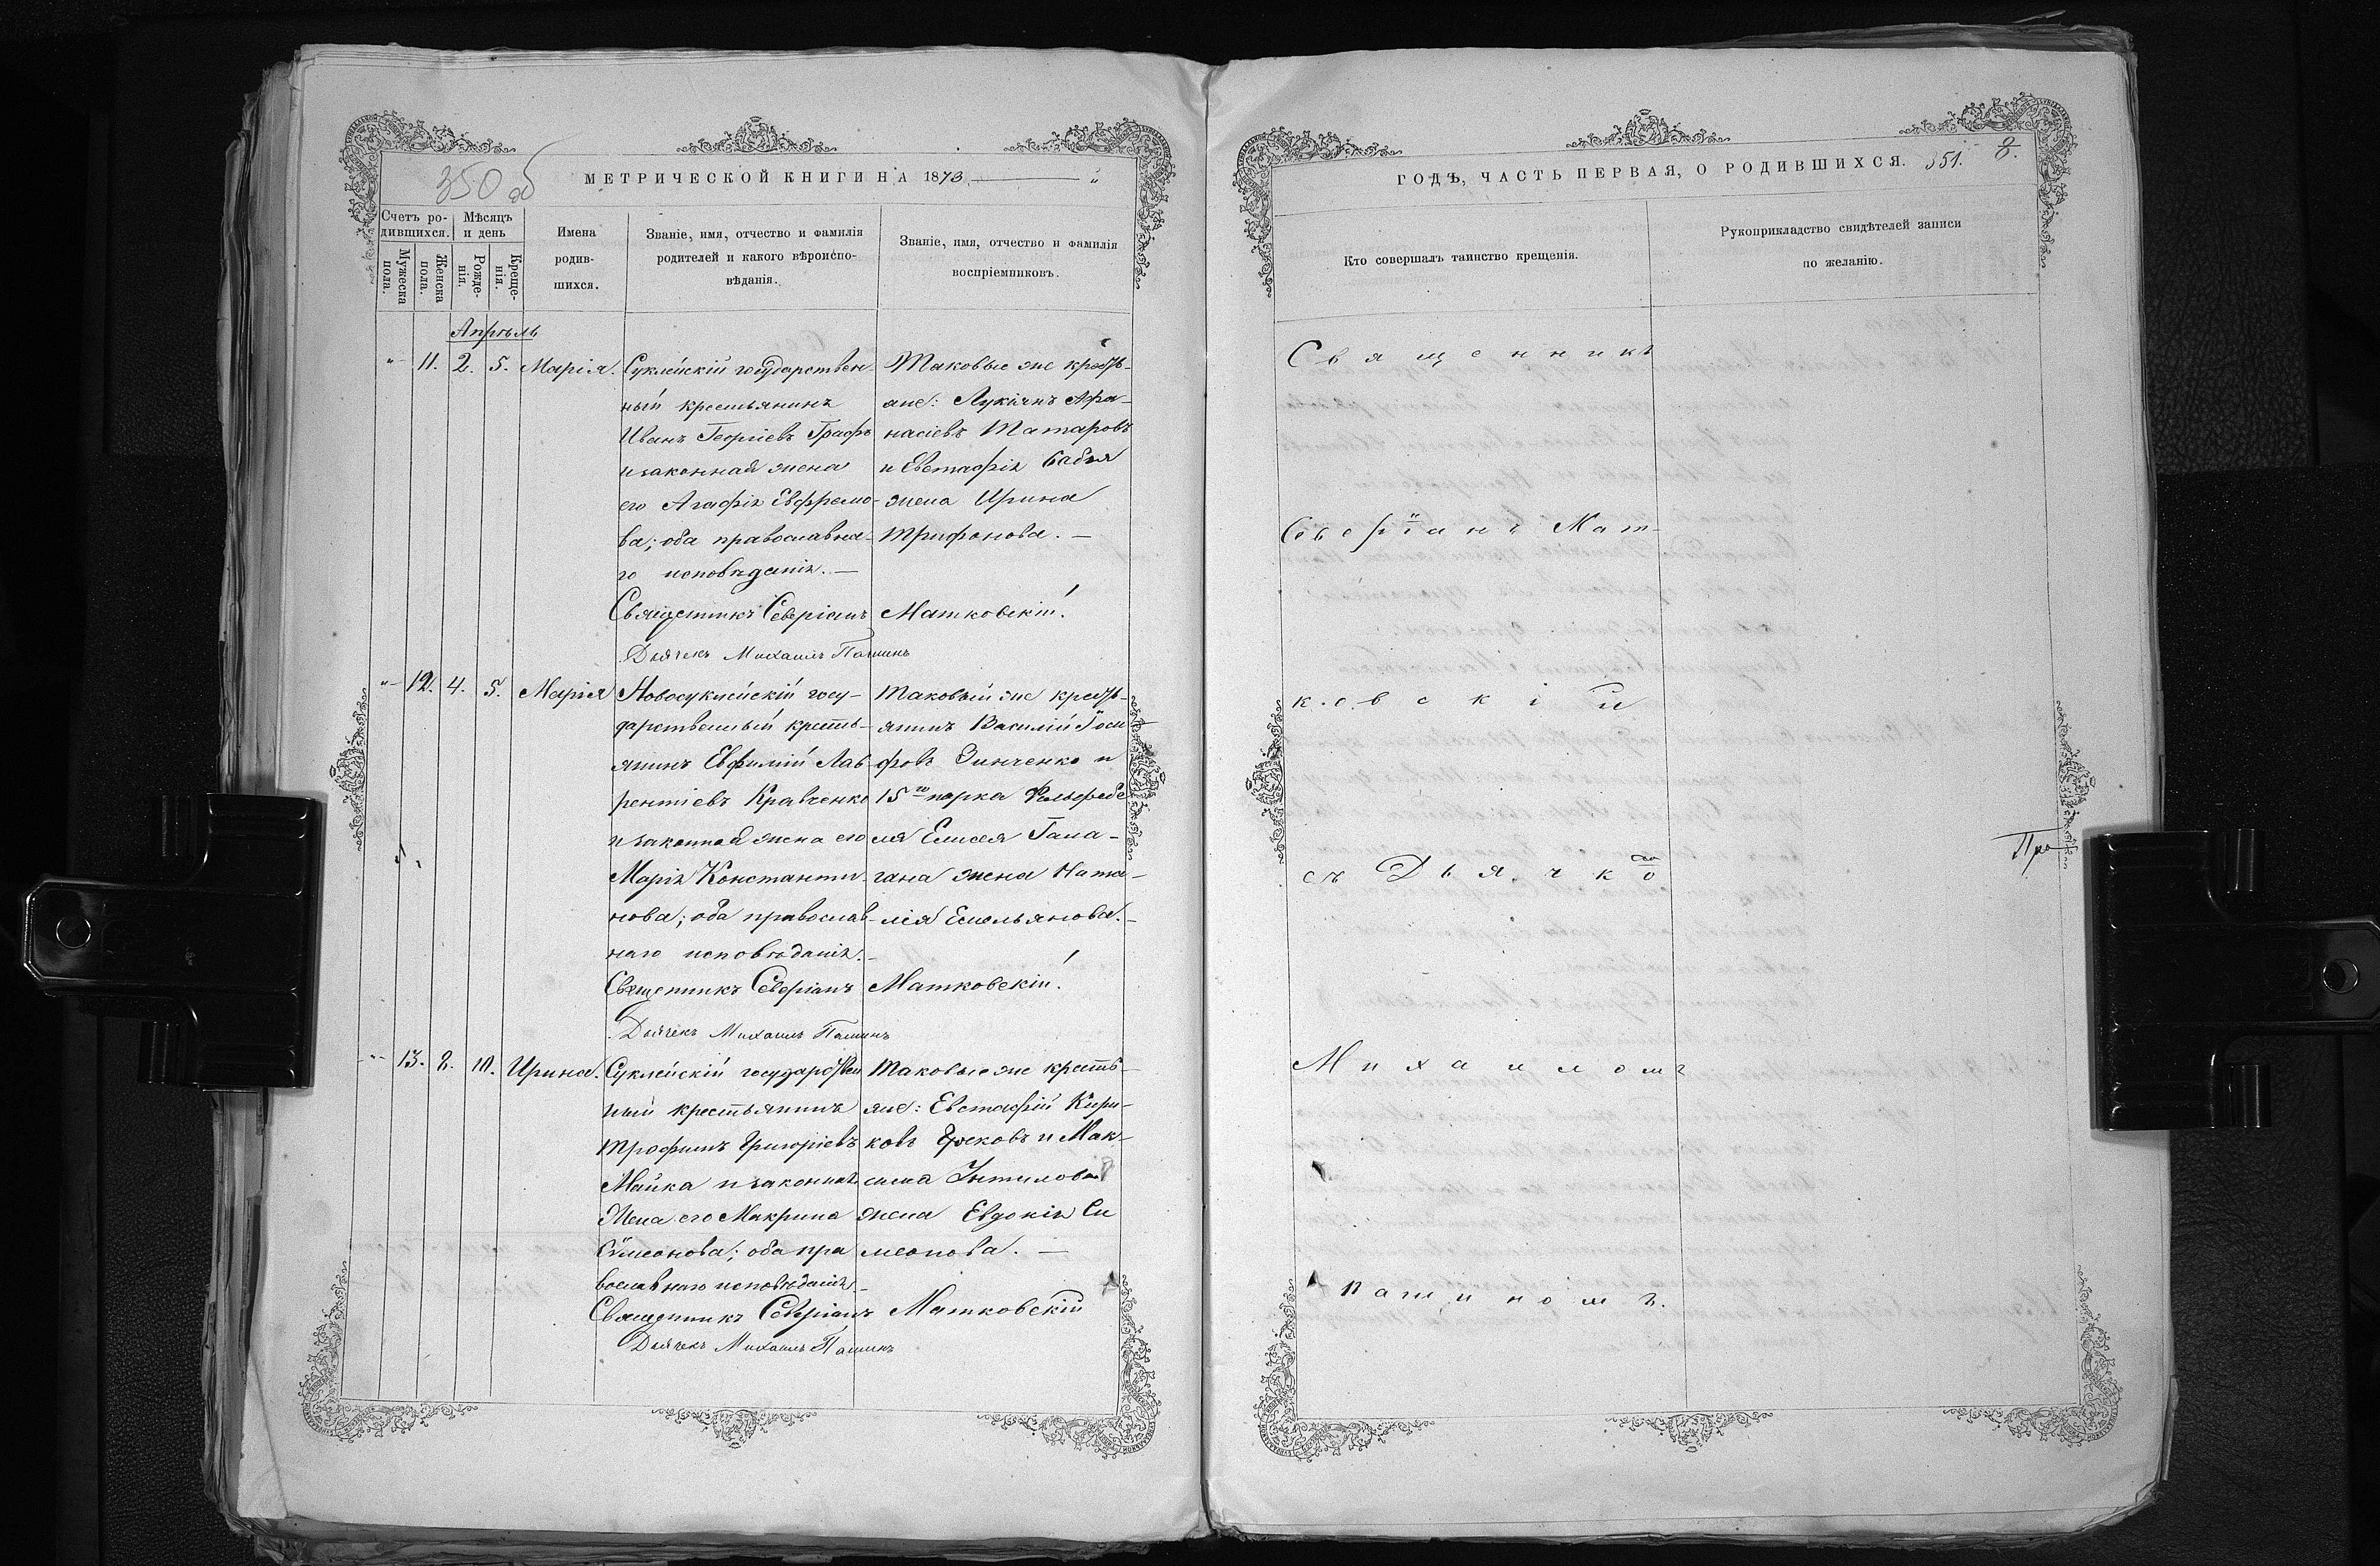 350 об
МЕТРИЧЕСКОЙ КНИГИ НА 1873.
Счетъ ро-
дившихся.
Мѣсяцъ
и день
Мужеска
пола.
Женска
пола.
Рожде-
нія.
Креще-
нія.
Имена
родив-
шихся.
Званіе, имя, отчество и фамилія
родителей и какого вѣроиспо-
вѣданія.
Званіе, имя, отчество и фамилія
воспріемниковъ.
Апрѣль
11. 2. 5. Марія.
Суклейскій государствен-
ный крестьянинъ
Иванъ Георгіевъ Графъ
и законная жена
его Агафія Евфремо-
ва; оба православна-
го исповѣданія.—
Таковые же кресть-
яне: Лукіянъ Афа-
насіевъ Татаровъ
и Евстафія Бабоя
жена Ирина
Трифонова.—
Священникъ Северіанъ Матковскій.
Дьячекъ Михаилъ Пашинъ
12. 4. 5. Марія
Новосуклейскій госу-
дарственный кресть-
янинъ Евфимій Лав-
рентіевъ Кравченко
и законная жена его
Марія Константи-
нова; оба православ-
наго исповѣданія.—
Таковый же кресть-
янинъ Василій Іоси-
фовъ Зинченко и
15го парка Фельдфебе
ля Елисея Гама-
жена Ната-
лія Емельянова.—
Священникъ Северіанъ Матковскій.
Дьячекъ Михаилъ Пашинъ
13. 8. 10. Ирина.
Суклейскій государствен
ный крестьянинъ
Трофимъ Григоріевъ
Майка и законная
жена его Макрина
Сѵмеонова; оба пра
вославнаго исповѣданія.—
Таковые же кресть-
яне: Евстафій Кири-
ковъ Грековъ и Мак-
сима Унтилова
жена Евдокія Си
меонова.—
Священникъ Северіанъ Матковскій
Дьячекъ Михаилъ Пашинъ
ГОДЪ, ЧАСТЬ ПЕРВАЯ, О РОДИВШИХСЯ. 351. 8.
Кто совершалъ таинство крещенія.
Рукоприкладство свидѣтелей записи
по желанію.
Священникъ
Северіанъ Мат-
ковскій
съ Дьячко
Михаиломъ
Пашиномъ.
Про